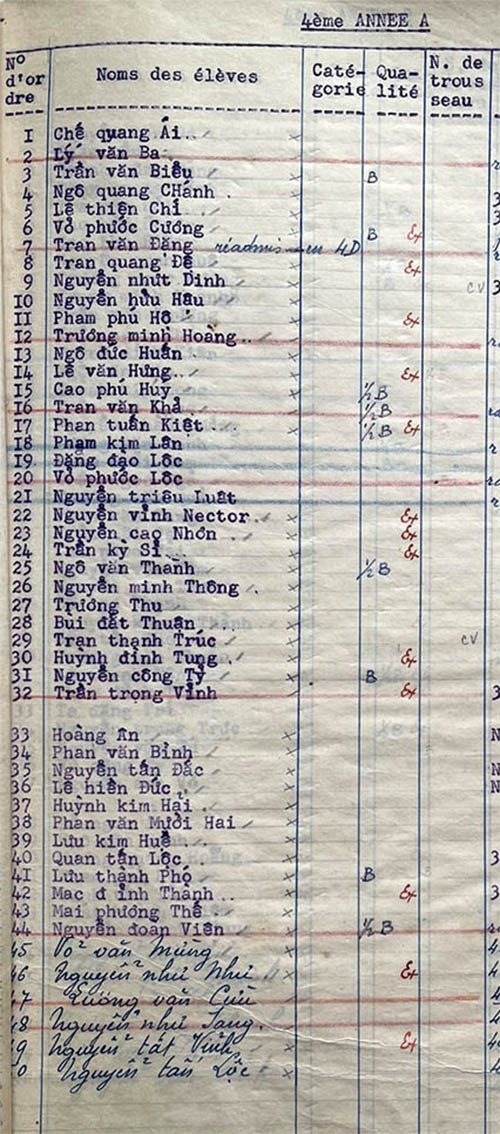 4ème ANNEE A
N° d'or dre Noms des élèves Caté- gorie Qua- lité N. de trous seau
I Chế quang Ái
2 Lý văn Ba
3 Trần văn Biểu B
4 Ngô quang CHánh
5 Lê thiện Chí
6 Võ phước Cường B Ex
7 Tran văn Đăng réadmis en 4D
8 Tran quang Đê Ex
9 Nguyễn nhứt Dinh CV
I0 Nguyễn hữu Hâu
II Pham phú Hô Ex
I2 Trương minh Hoàng
I3 Ngô đức Huấn
I4 Lê văn Hưng Ex
I5 Cao phú Huý 1/2 B
I6 Tran văn Khả 1/2 B
I7 Phan tuấn Kiệt 1/2 B Ex
I8 Phạm kim Lân
I9 Đặng đạo Lôc
20 Võ phước Lôc
2I Nguyễn triêu Luât
22 Nguyễn vỉnh Nector Ex
23 Nguyễn cao Nhơn Ex
24 Trần kỳ Sĩ Ex
25 Ngô văn Thanh 1/2 B
26 Nguyễn minh Thông
27 Trương Thu
28 Bùi đắt Thuận
29 Trạn thạnh Trúc CV
30 Huỳnh đình Tung Ex
3I Nguyễn công Tỷ B
32 Trần trọng Vĩnh Ex
33 Hoàng Ân
34 Phan văn Bỉnh
35 Nguyễn tấn Đắc
36 Lê hiền Đức
37 Huỳnh kim Hải
38 Phan văn Mười Hai
39 Lưu kim Huê
40 Quan tấn Lộc
4I Lưu thành Phó B
42 Mac đ ình Thành Ex
43 Mai phương Thê
44 Nguyễn đoan Viên 1/2 B
45 Võ văn Mừng
46 Nguyễn như Như Ex
47 Lương văn Cưu
48 Nguyễn như Sang
9 Nguyễn tất Vinh Ex
0 Nguyễn tấn Lộc